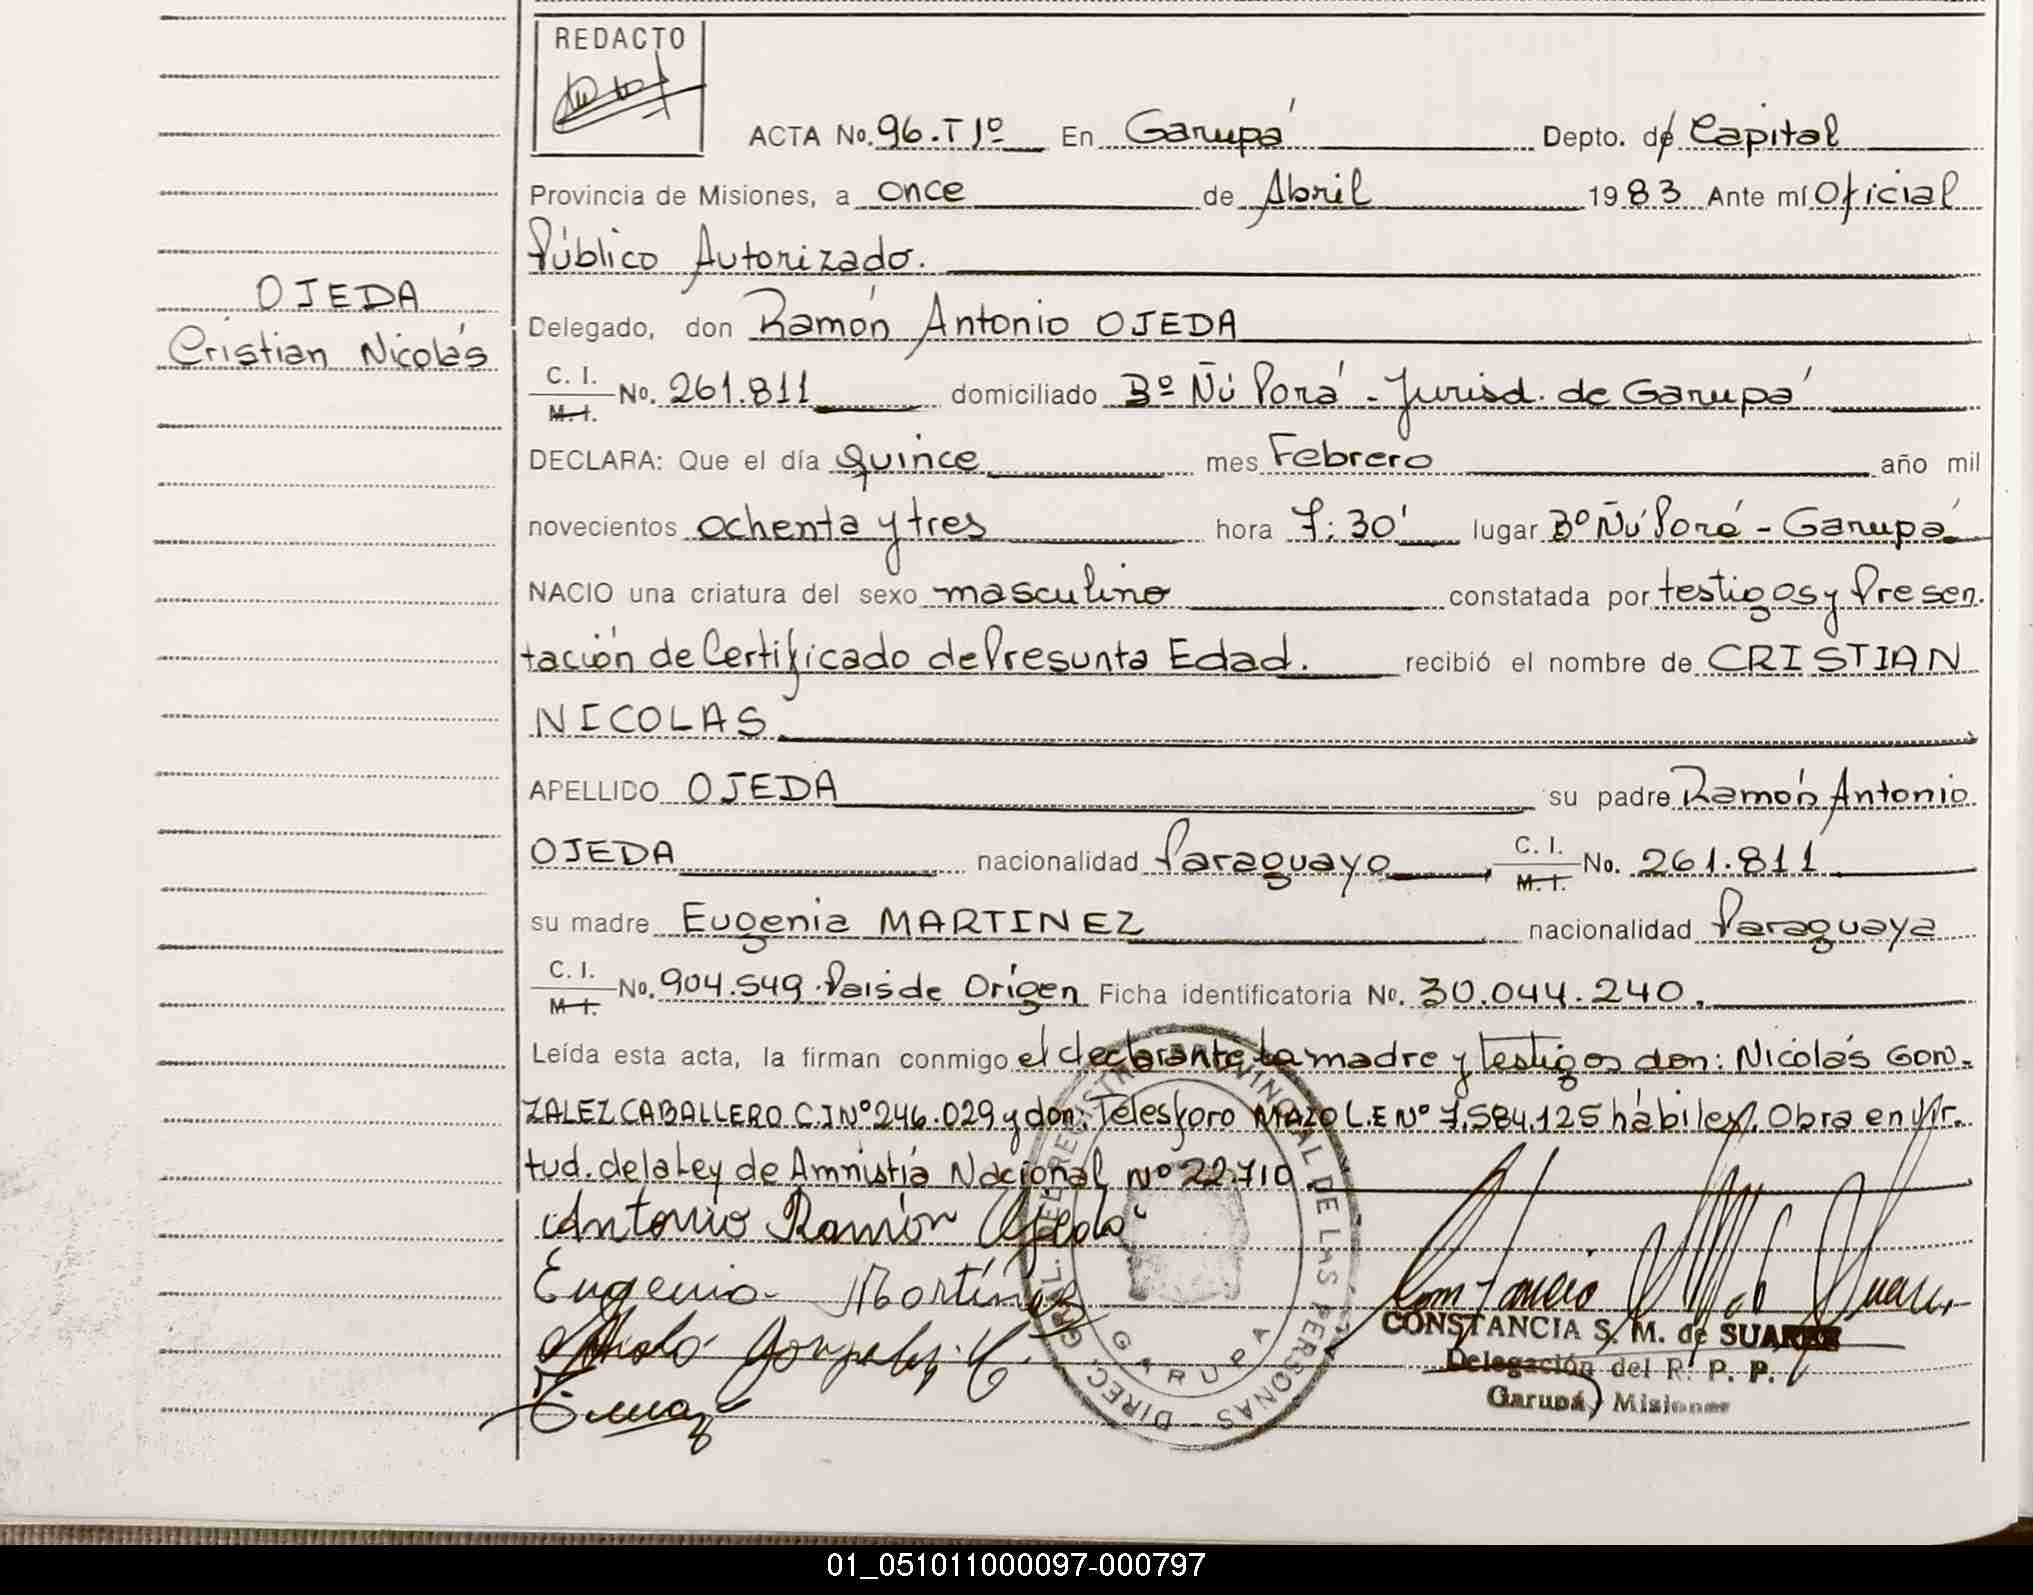 REDACTO
ACTA No. 96.T1º En Garupá Depto. de Capital
Provincia de Misiones, a once de Abril 1983 Ante mí Oficial
Público Autorizado.
OJEDA
Cristian Nicolás
Delegado, don Ramón Antonio OJEDA
C. I. M. I. No. 261.811 domiciliado Bº Ñú Porá - Jurisd. de Garupá
DECLARA: Que el día quince mes Febrero año mil
novecientos ochenta y tres hora 7:30' lugar Bº Ñú Porá - Garupá
NACIO una criatura del sexo masculino constatada por testigos y Presen.
tación de Certificado de Presunta Edad. recibió el nombre de CRISTIAN
NICOLAS
APELLIDO OJEDA su padre Ramón Antonio
OJEDA nacionalidad Paraguayo C. I. M. I. No. 261.811
su madre Eugenia MARTINEZ nacionalidad Paraguaya
C. I. M. I. No. 904.549. País de Orígen Ficha identificatoria No. 30.044.240.
Leída esta acta, la firman conmigo el declarante la madre y testigos don: Nicolás GON-
ZALEZ CABALLERO C.I Nº 246.029 y don: Telesforo MAZO L.E Nº 7.584.125 hábiles. Obra en Vir.
tud. de la Ley de Amnistía Nacional Nº 22.710.
Antonio Ramón Ojeda
Eugenia Martínez
González C.
DIREC. GRAL. DEL REGISTRO PROVINCIAL DE LAS PERSONAS
GARUPA
CONSTANCIA S. M. de SUAREZ
Delegación del R. P. P.
Garupá, Misiones
01_051011000097-000797